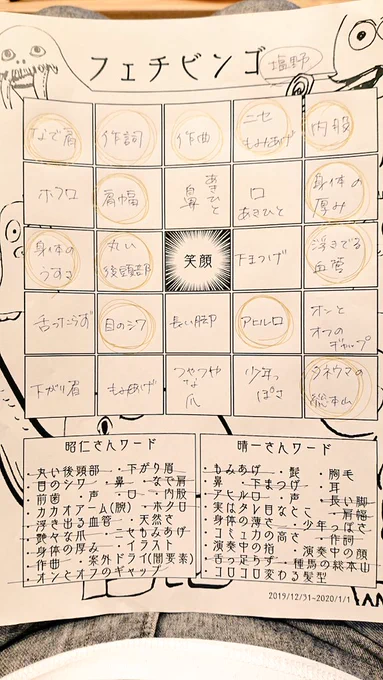 フェチビンゴ 塩野
なで肩 作詞 作曲 ニセもみあげ 内股
ホクロ 肩幅 あきひと鼻 口あきひと 身体の厚み
身体のうすさ 丸い後頭部 笑顔 下まつげ 浮きでる血管
舌ったらず 目のシワ 長い脚 アヒル口 オンとオフのギャップ
下がり眉 もみあげ つやつやな爪 少年っぽさ タネウマの総本山
昭仁さんワード
・丸い後頭部 ・下がり眉
・目のシワ ・鼻 ・なで肩
・前歯 ・声 ・口 ・内股
・カカオアーム(腕) ・ホクロ
・浮き出る血管 ・天然さ
・艶々な爪 ・ニセもみあげ
・身体の厚み ・イラスト
・作曲 ・案外ドライ(闇要素)
・オンとオフのギャップ
晴一さんワード
・もみあげ ・髭 ・胸毛
・鼻 ・下まつげ ・耳
・アヒル口 ・声 ・長い脚
・実はタレ目なとこ ・肩幅
・身体の薄さ ・少年っぽさ
・コミュ力の高さ ・作詞
・演奏中の指 ・演奏中の顔
・舌っ足らず ・種馬の総本山
・コロコロ変わる髪型
2019/12/31~2020/1/1